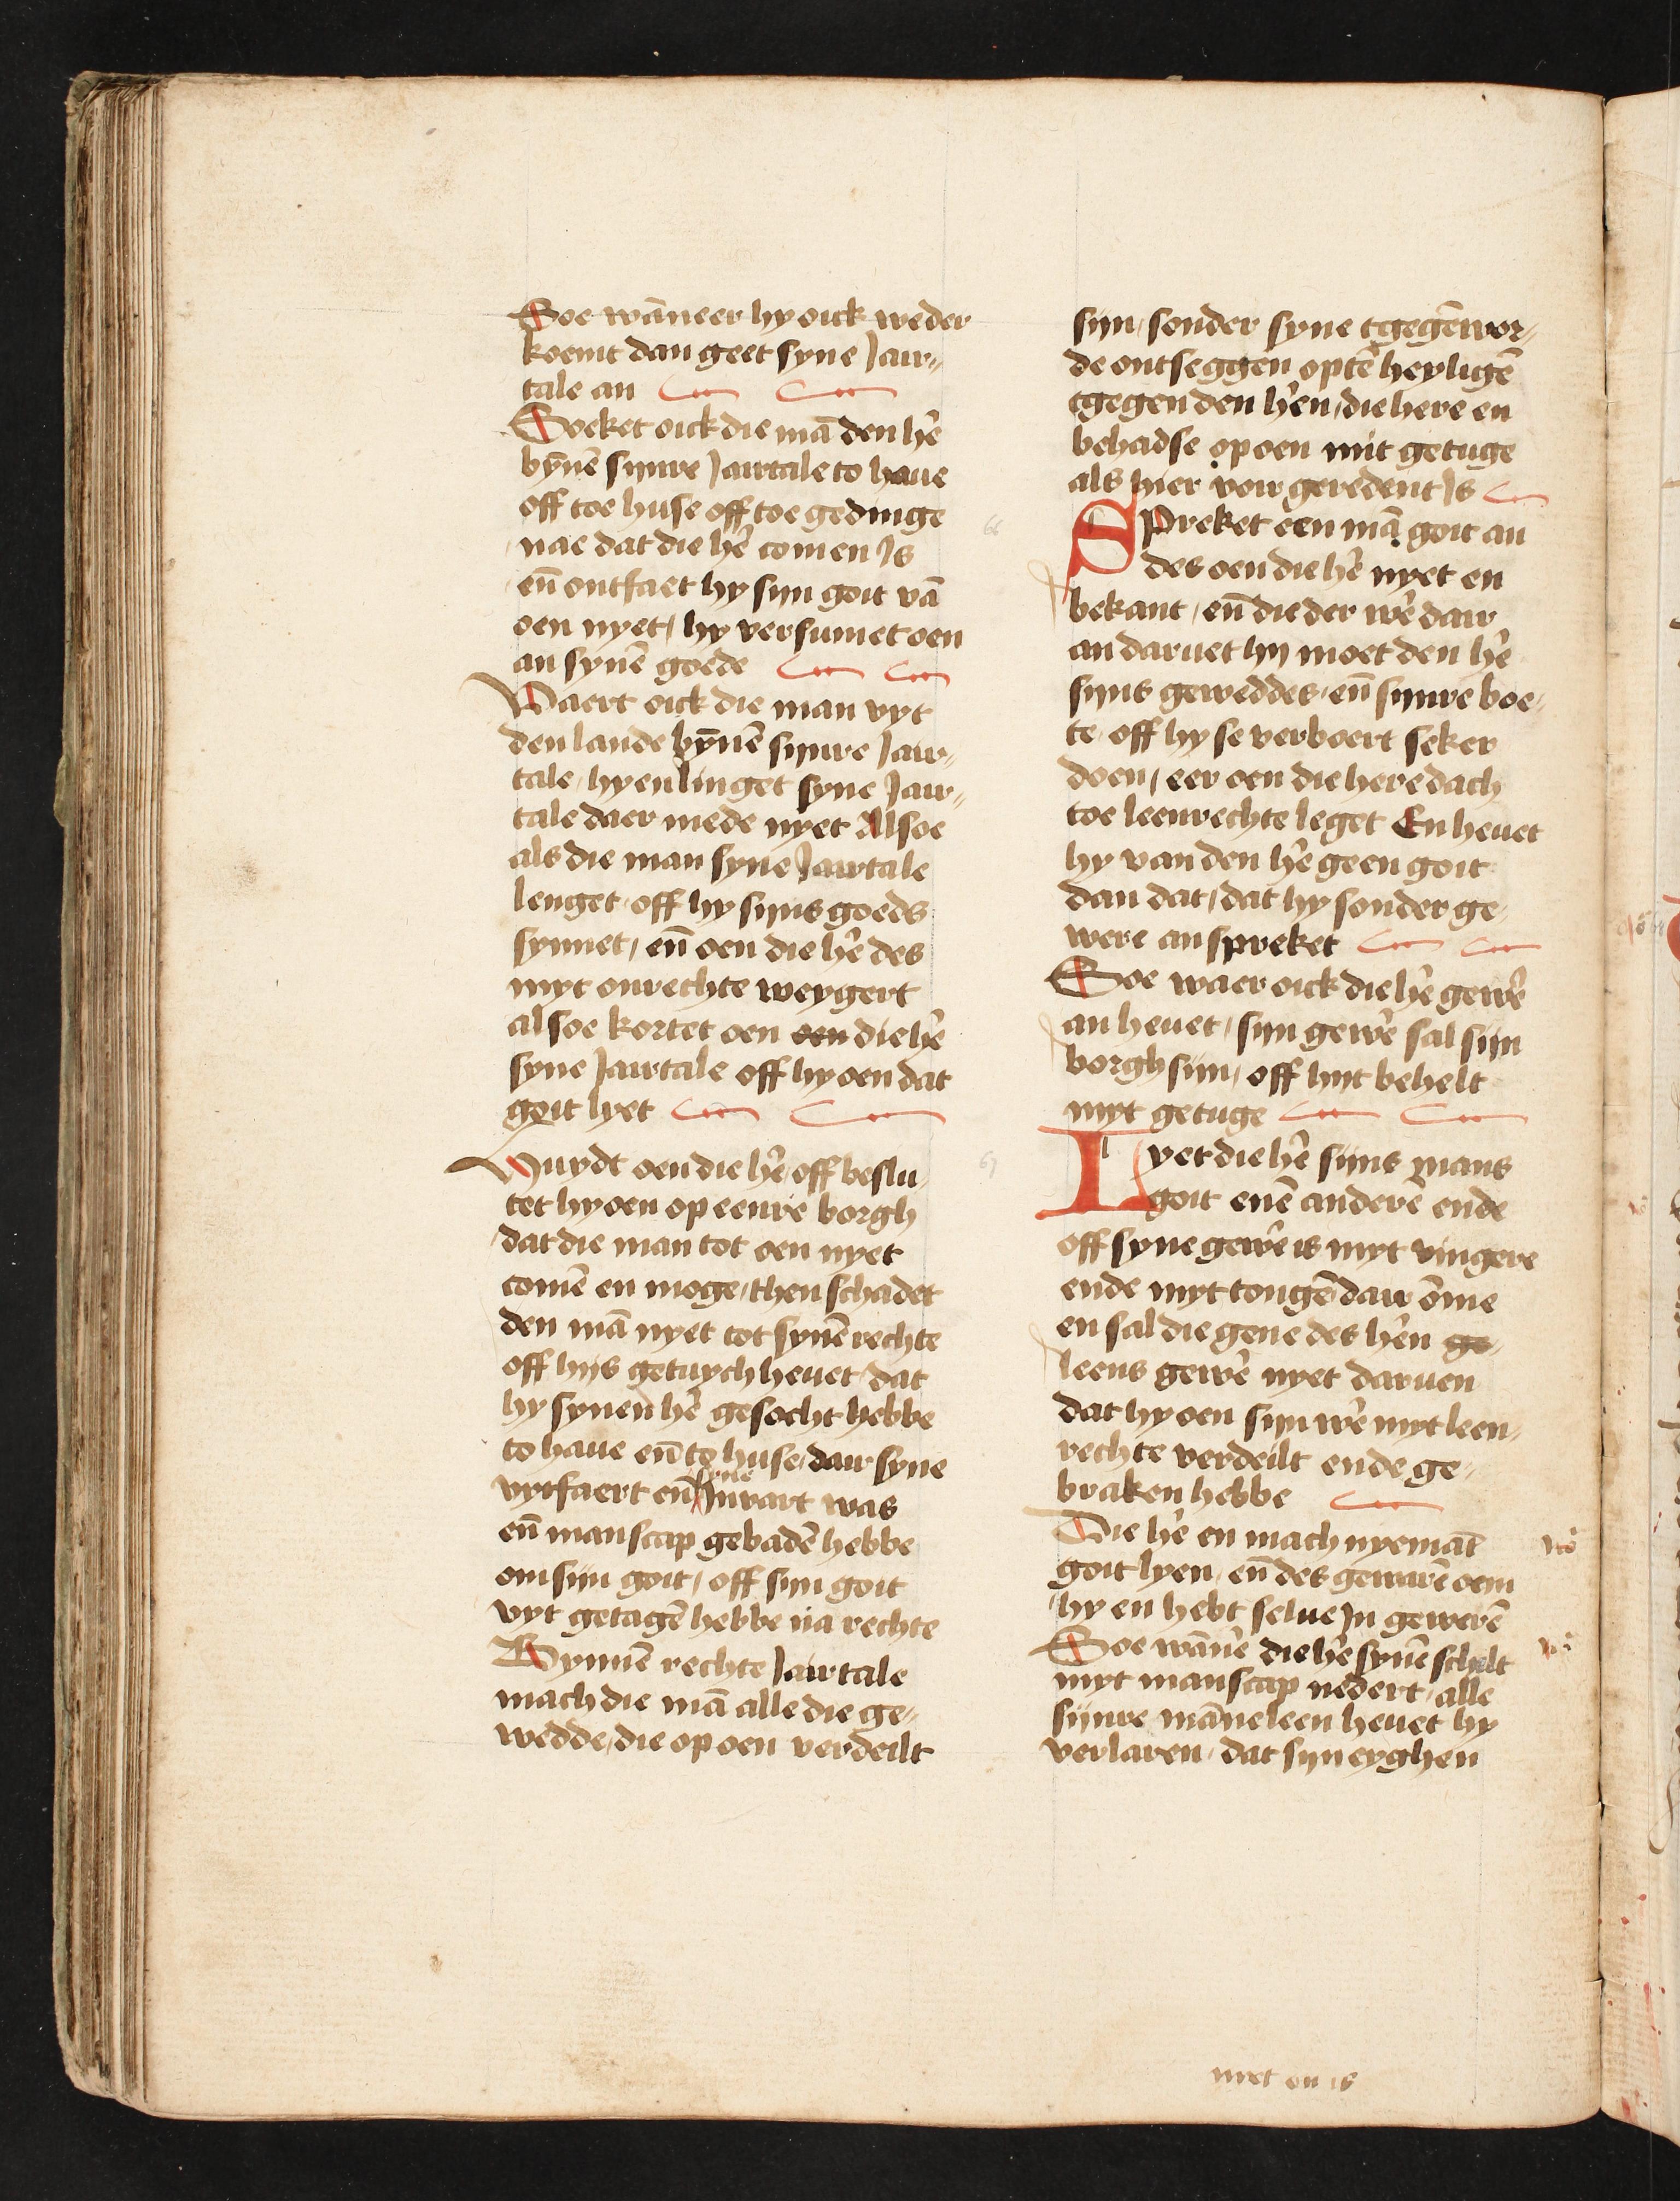 Soe wāneer hy oick weder
koemt dan geet syne Jair„
tale an
Soeket oick die mā den hē
bȳnē sijnre Jairtale to haue
off toe huse off toe gedinge
nae dat die hē comen Js
en̄ ontfaet hy sijn goit vā
oen nyet / hy versumet oen
an synē goede
Vaert oick die man vyt
den lande bȳnē sijnre Jair„
tale / hy enlinget syne Jair„
tale daer mede nyet Alsoe
als die man syne Jairtale
lenget / off hy sijns goeds
synnet / en̄ oen die hē des
myt onrechte weygert
alsoe kortet oen oen die hē
syne Jairtale off hy oen dat
goit lyet
Vluydt oen die hē / off beslu„
tet hy oen op eenre borgh
dat die man tot oen nyet
comē en moge / then schadet
den mā nyet tot synē rechte
off hijs getuych heuet / dat
hy synen hē gesocht hebbe
to haue en̄ to huse / dair syne
vytfaert en̄ syne Jnvart was
en̄ manscap gebadē hebbe
om sijn goit / off sijn goit
vyt getagē hebbe na rechte
Bynnē rechte Jairtale
mach die mā alle die ge„
wedde / die op oen verdeilt
sijn / sonder syne tgegēwor„
de ontseggen optē heyligē
tgegen den hēn / die here en
behadse op oen mit getuge
als hier voir geredent Js
66
Spreket een mā goit an
des oen die hē nyet en
bekant / en̄ die der wē dair
an daruet hij moet den hē
sijns geweddes / en̄ sijnre boe„
te / off hy se verboert seker
doen / eer oen die here dach
toe leenrechte leget En heuet
hy van den hē geen goit
dan dat / dat hy sonder ge„
were anspreket
Soe waer oick die hē gewē
an heuet / sijn gewē sal sijn
borgh sijn / off hijt behelt
myt getuge
67
Lyet die hē sijns mans
goit enē anderē ende
off syne gewē is myt vingere
ende myt tongē dair ōme
en sal die gene des hēn ge„
leens gewē nyet daruen
dat hy oen sijn wē myt leen„
rechte verdeilt ende ge„
braken hebbe
Die hē en mach nyemāt
goit lyen / en̄ des gewarē oem
hy en hebt selue Jn gewerē
Soe wānē die hē synē schilt
myt manscap nedert / alle
sijnre māne leen heuet hy
verlaren / dat sijn eyghen
nyet en is